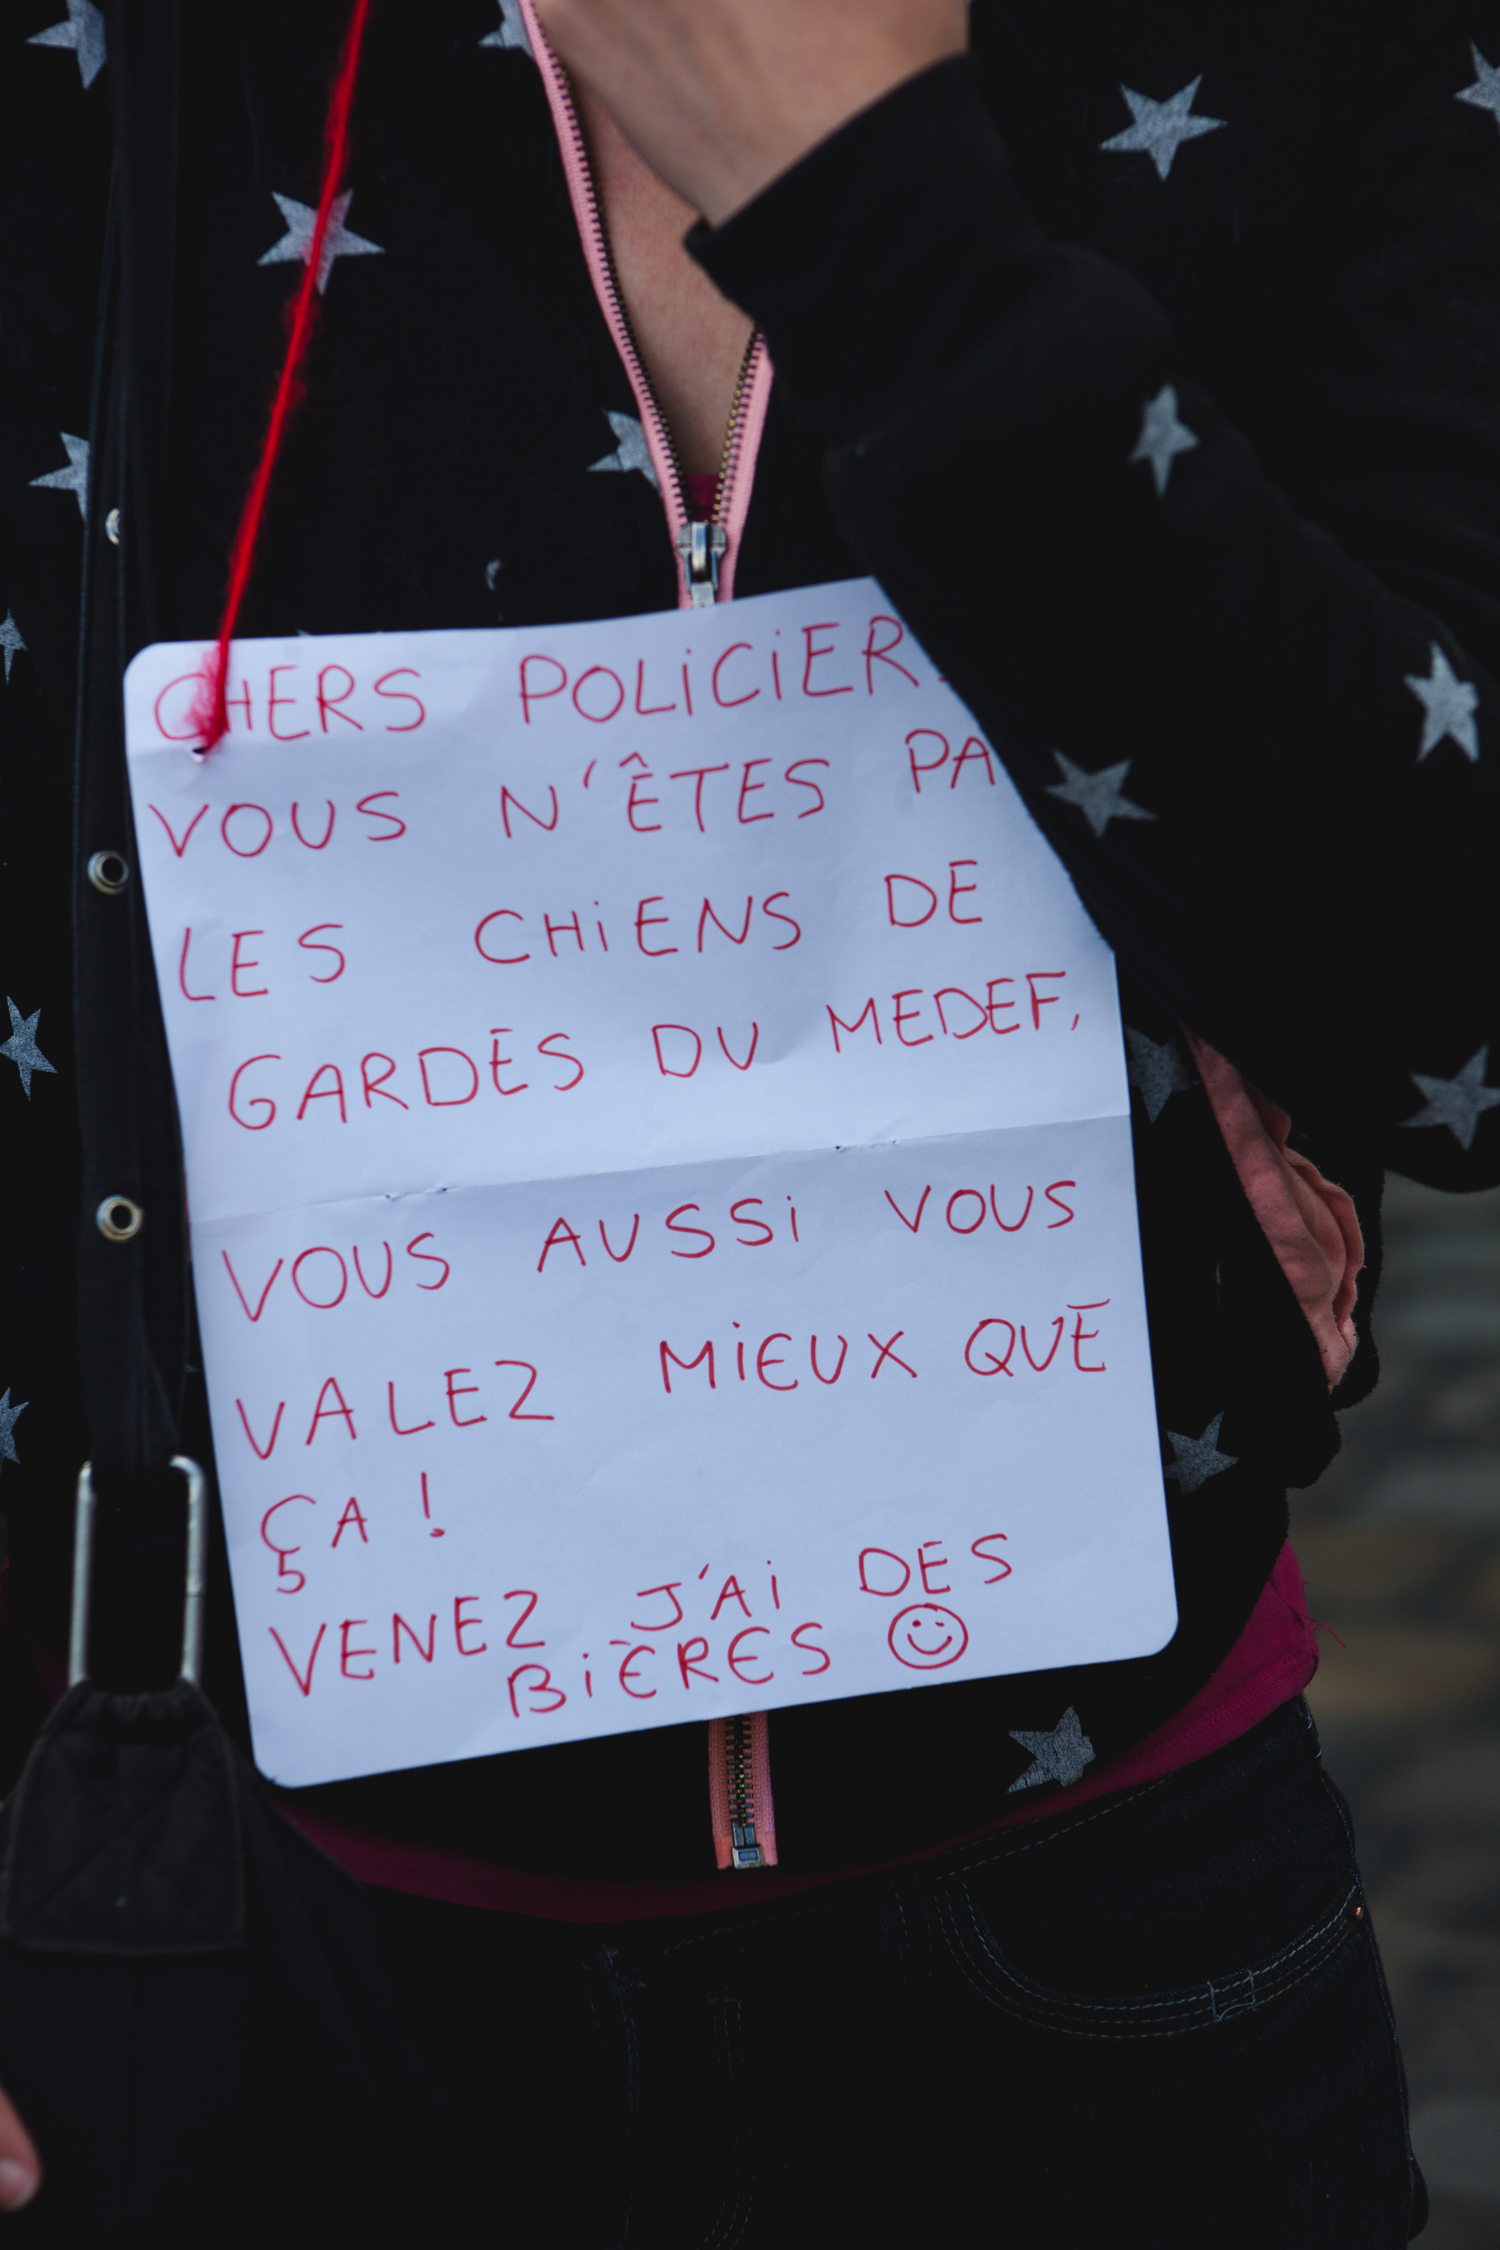 CHERS POLICIER
VOUS N'ÊTES PA
LES CHIENS DE
GARDES DU MEDEF,
VOUS AUSSI VOUS
VALEZ MIEUX QUE
ÇA !
VENEZ J'AI DES
BIÈRES